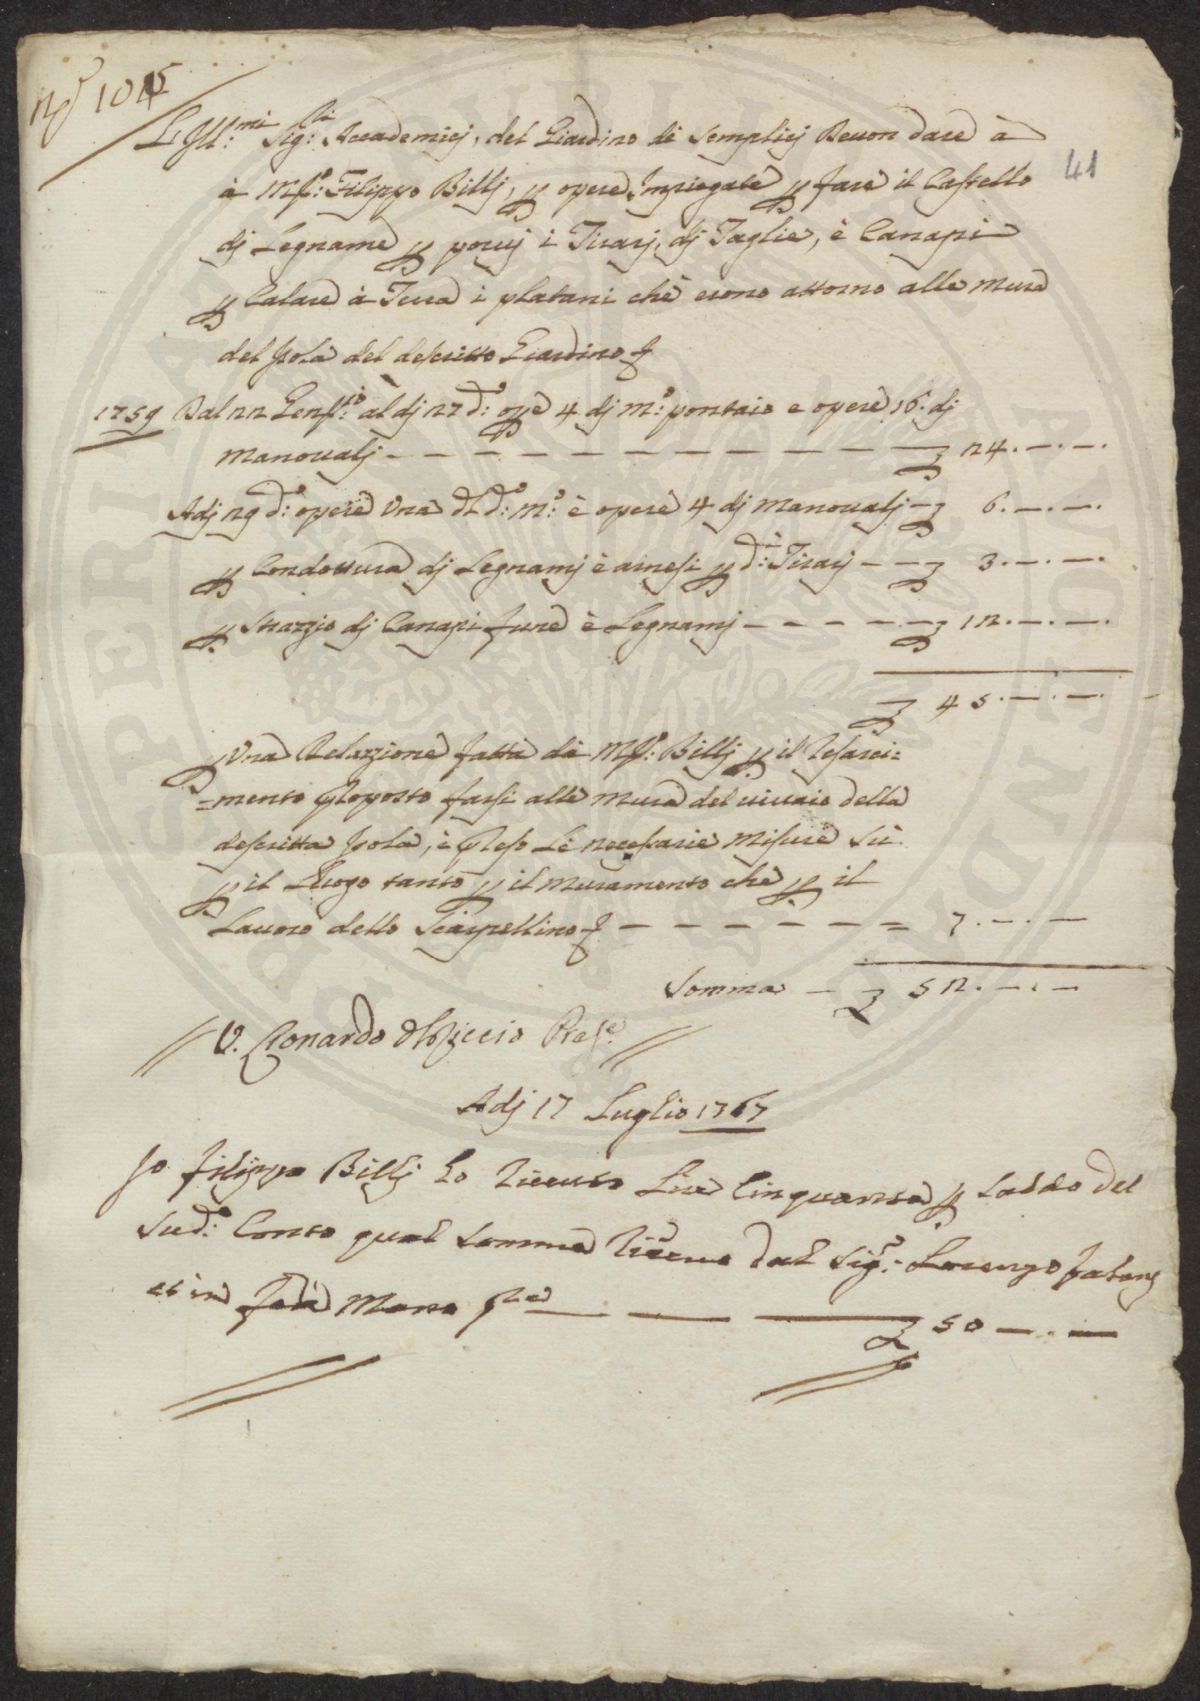 N.º 1015
L'Ill:mi Sig:ri Accademicj, del Giardino de Semplicj Deuon dare à
à M.º: Filippo Billj, p opere Impiegate p fare il Castello
dj Legname p poruj i Tirarj, dj Taglie, è Canapi
p Calare à Terra i platani chè erono attorno alle mura
del Isola del descritto Giardino
41
1759 Dal 22 Genº: al dj 27 dº: opè 4 dj mº: pontaio e opere 16. dj
manoualj - - - - - £ 24.-.-.
Adj 29 dº: opere Una dl dº: mº: è operè 4 dj manoualj - £ 6.-.-.
p Condottura dj Legnamj è arnesi p di: Tirarj - - £ 3.-.-.
p Strazzio dj Canapi fune è Legnamj - - - - £ 12.-.-.
£ 45.-.-.
p Una Relazzione fatta dà Mº: Billj p il resarci=
=mento proposto farsi alle mura del uiuaio della
descritta Isola, è preso Le necessarie misure Sù
p il Luogo tanto p il muramento chè p il
Lauoro dello Scarpellino - - - - - = 7.-.-
Somma - £ 52.-.-
V. Leonardo del Riccio Pres.e
Adj 17 Luglio 1767
Io Filippo Billj ho riceuto Lire Cinquanta p saldo del
Sud.º Conto qual somma riceuo dal Sig.r: Lorenzo
et in fede Mano pp.a £ 50 -.-